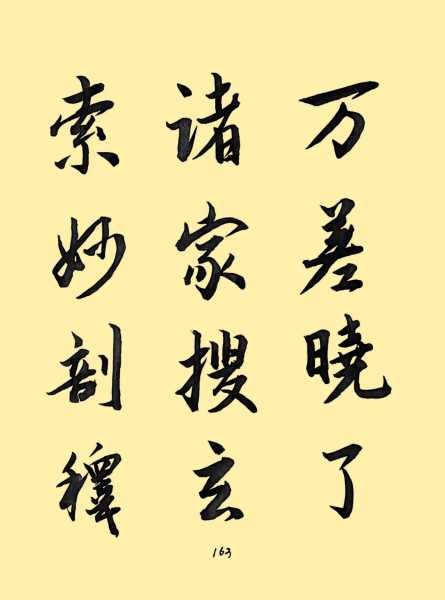 万差曉了
诸家搜玄
索妙剖釋
163